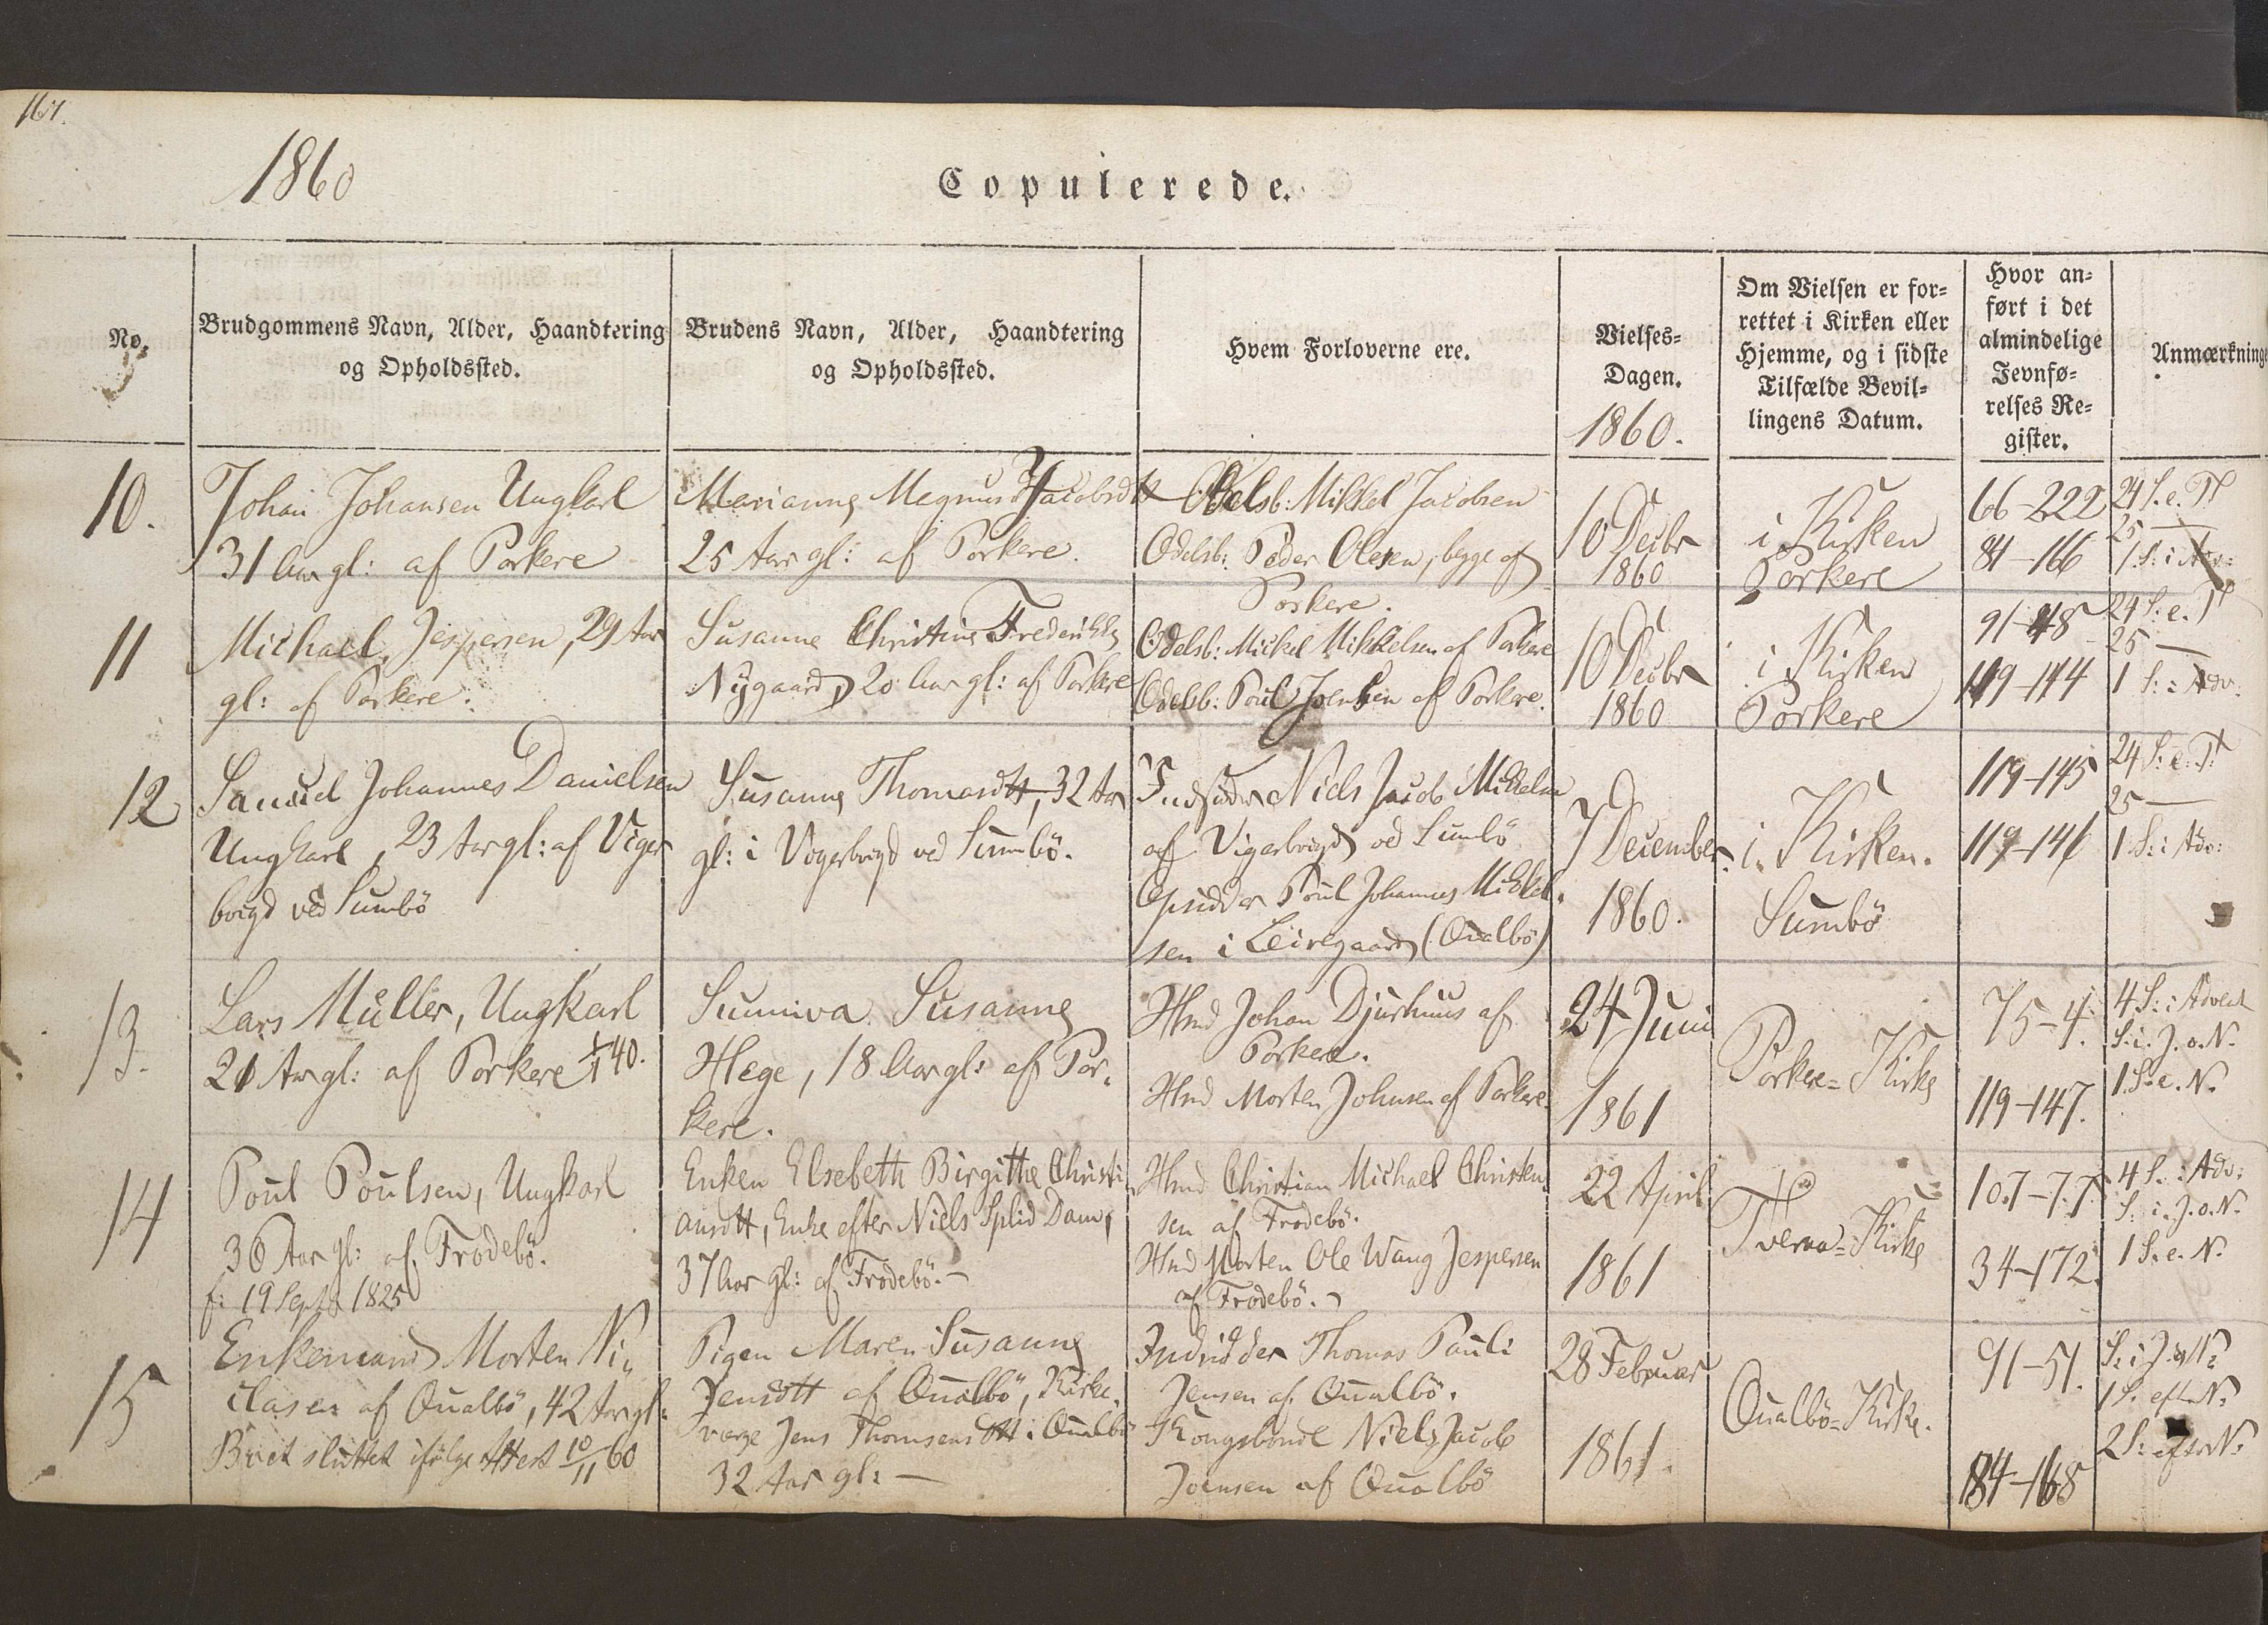 161.
1860
Copulerede.
No.
Brudgommens Navn, Alder, Haandtering
og Opholdssted.
Brudens Navn, Alder, Haandtering
og Opholdssted.
Hvem Forloverne ere.
Vielses-
Dagen.
1860.
Om Vielsen er for-
rettet i Kirken eller
Hjemme, og i sidste
Tilfælde Bevil-
lingens Datum.
Hvor an-
ført i det
almindelige
Jevnfø-
relses Re-
gister.
Anmærkninge
10.
Johan Johansen Ungkarl
31 Aar gl: af Porkere
Marianne Magnus Jacobsdtt
25 Aar gl: af Porkere.
Odelsb: Mikkel Jacobsen
Odelsb: Peder Olesen, begge af
Porkere.
10 Decbr
1860
i Kirken
Porkere
66-222
84-166
24 S. e. Tr
25 —
1 S. i Adv:
11
Michael Jespersen, 29 Aar
gl: af Porkere.
Susanne Christine Frederikke
Nygaard, 20 Aar gl: af Porkere
Odelsb: Mickel Mikkelsen af Porkere
Odelsb: Poul Joensen af Porkere.
10 Decbr
1860
i Kirken
Porkere
91-48
119-144
24 S. e. Tr
25 —
1 S: i Adv.
12
Samuel Johannes Danielsen
Ungkarl, 23 Aar gl: af Viger
bÿgd ved Sumbö
Susanne Thomasdtt, 32 Aar
gl: i Vigerbÿgd ved Sumbö.
Indsidder Niels Jacob Mikkelsen
af Vigerbÿgd ved Sumbö
Opsidder Poul Johannes Mikkel-
sen i Leiregaard (Qualbö)
7 December
1860.
i Kirken.
Sumbö
119-145
119-146
24 S: e. Tr
25 —
1 S: i Adv:
13.
Lars Müller, Ungkarl
21 Aar gl: af Porkere 1/1 40.
Sunniva Susanne
Hege, 18 Aar gl: af Por-
kere.
Hmd Johan Djurhuus af
Porkere.
Hmd Morten Johnsen af Porkere.
24 Juni
1861
Porkere-Kirke
75-4.
119-147.
4 S: i Advent
S. i. J. o. N.
1 S. e. N.
14
Poul Poulsen, Ungkarl
36 Aar gl: af Frodebö.
f: 19 Septb 1825
Enken Elsebeth Birgitthe Christi-
ansdtt, Enke efter Niels Splid Dam,
37 Aar gl: af Frodebö.—
Hmd Christian Michael Christen-
sen af Frodebö.
Hmd Morten Ole Wang Jespersen
af Frodebö.—
22 April
1861
Tveraa-Kirke
107-77.
34-172.
4 S. i Adv:
S. i. J. o. N.
1 S. e. N.
15
Enkemand Morten Ni-
clasen af Qualbö, 42 Aar gl:
Boet sluttet ifølge Attest 10/11 60
Pigen Maren Susanne
Jensdtt af Qualbö, Kirke-
værge Jens Thomsens Dtt i Qualbö
32 Aar gl:—
Indsidder Thomas Pauli
Jensen af Qualbö.
Kongsbonde Niels Jacob
Joensen af Qualbö
28 Februar
1861.
Qualbö-Kirke.
91-51.
84-168
S. i J. og N:
1 S. eft. N:
2 S: efter N: